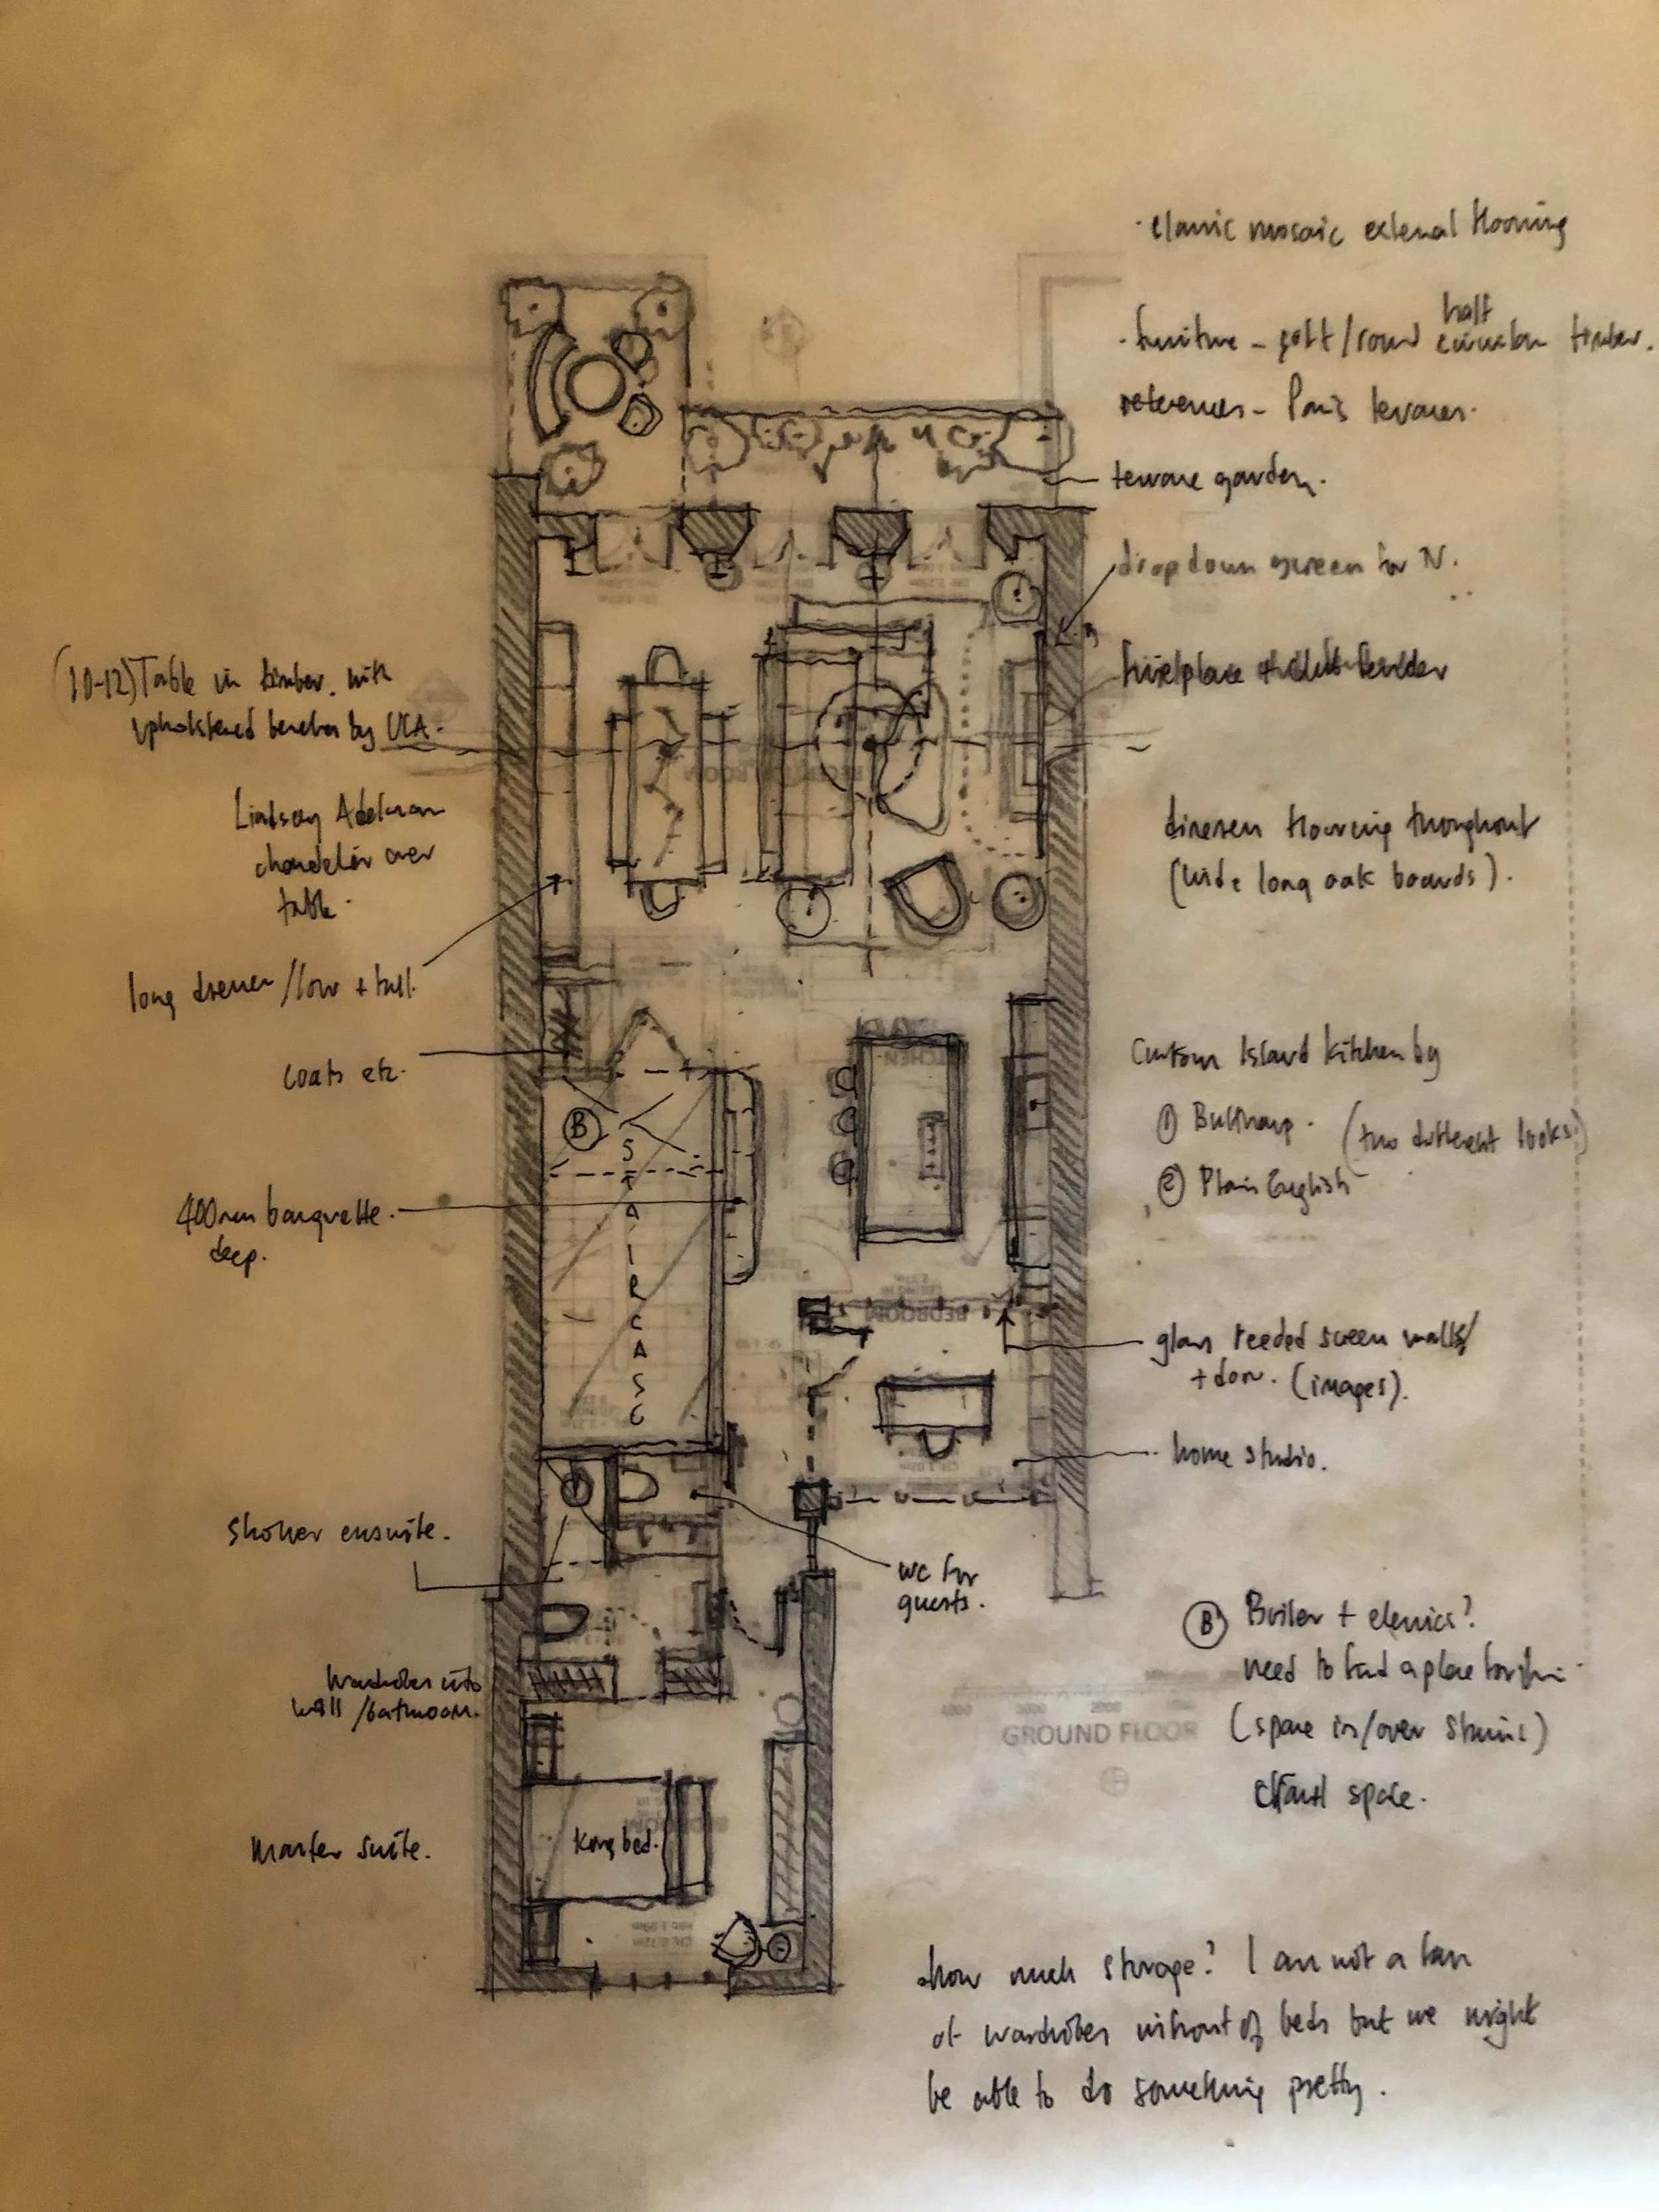 · classic mosaic external flooring
· furniture - soft / round half circular timber.
references - Paris terraces.
terrace garden.
drop down screen for TV.
fireplace
(10-12) Table in timber. with
upholstered benches by UCA.
Lindsey Adelman
chandelier over
table.
long dresser / low + tall.
coats etc.
400mm banquette.
deep.
shower ensuite.
wardrobes into
wall / bathroom.
Master suite.
dinesen flooring throughout
(wide long oak boards).
Custom Island kitchen by
① Bulthaup. (two different looks)
② Plain English
glass reeded screen walls/
+ door. (images).
home studio.
wc for
guests.
Ⓑ Boiler + elecrics?
need to find a place for
(space in/over stairs)
space.
how much storage? I am not a fan
of wardrobes infront of beds but we might
be able to do something pretty.
Ⓑ
STAIRCASE
King bed.
RECEPTION ROOM
KITCHEN
BEDROOM
BEDROOM
GROUND FLOOR